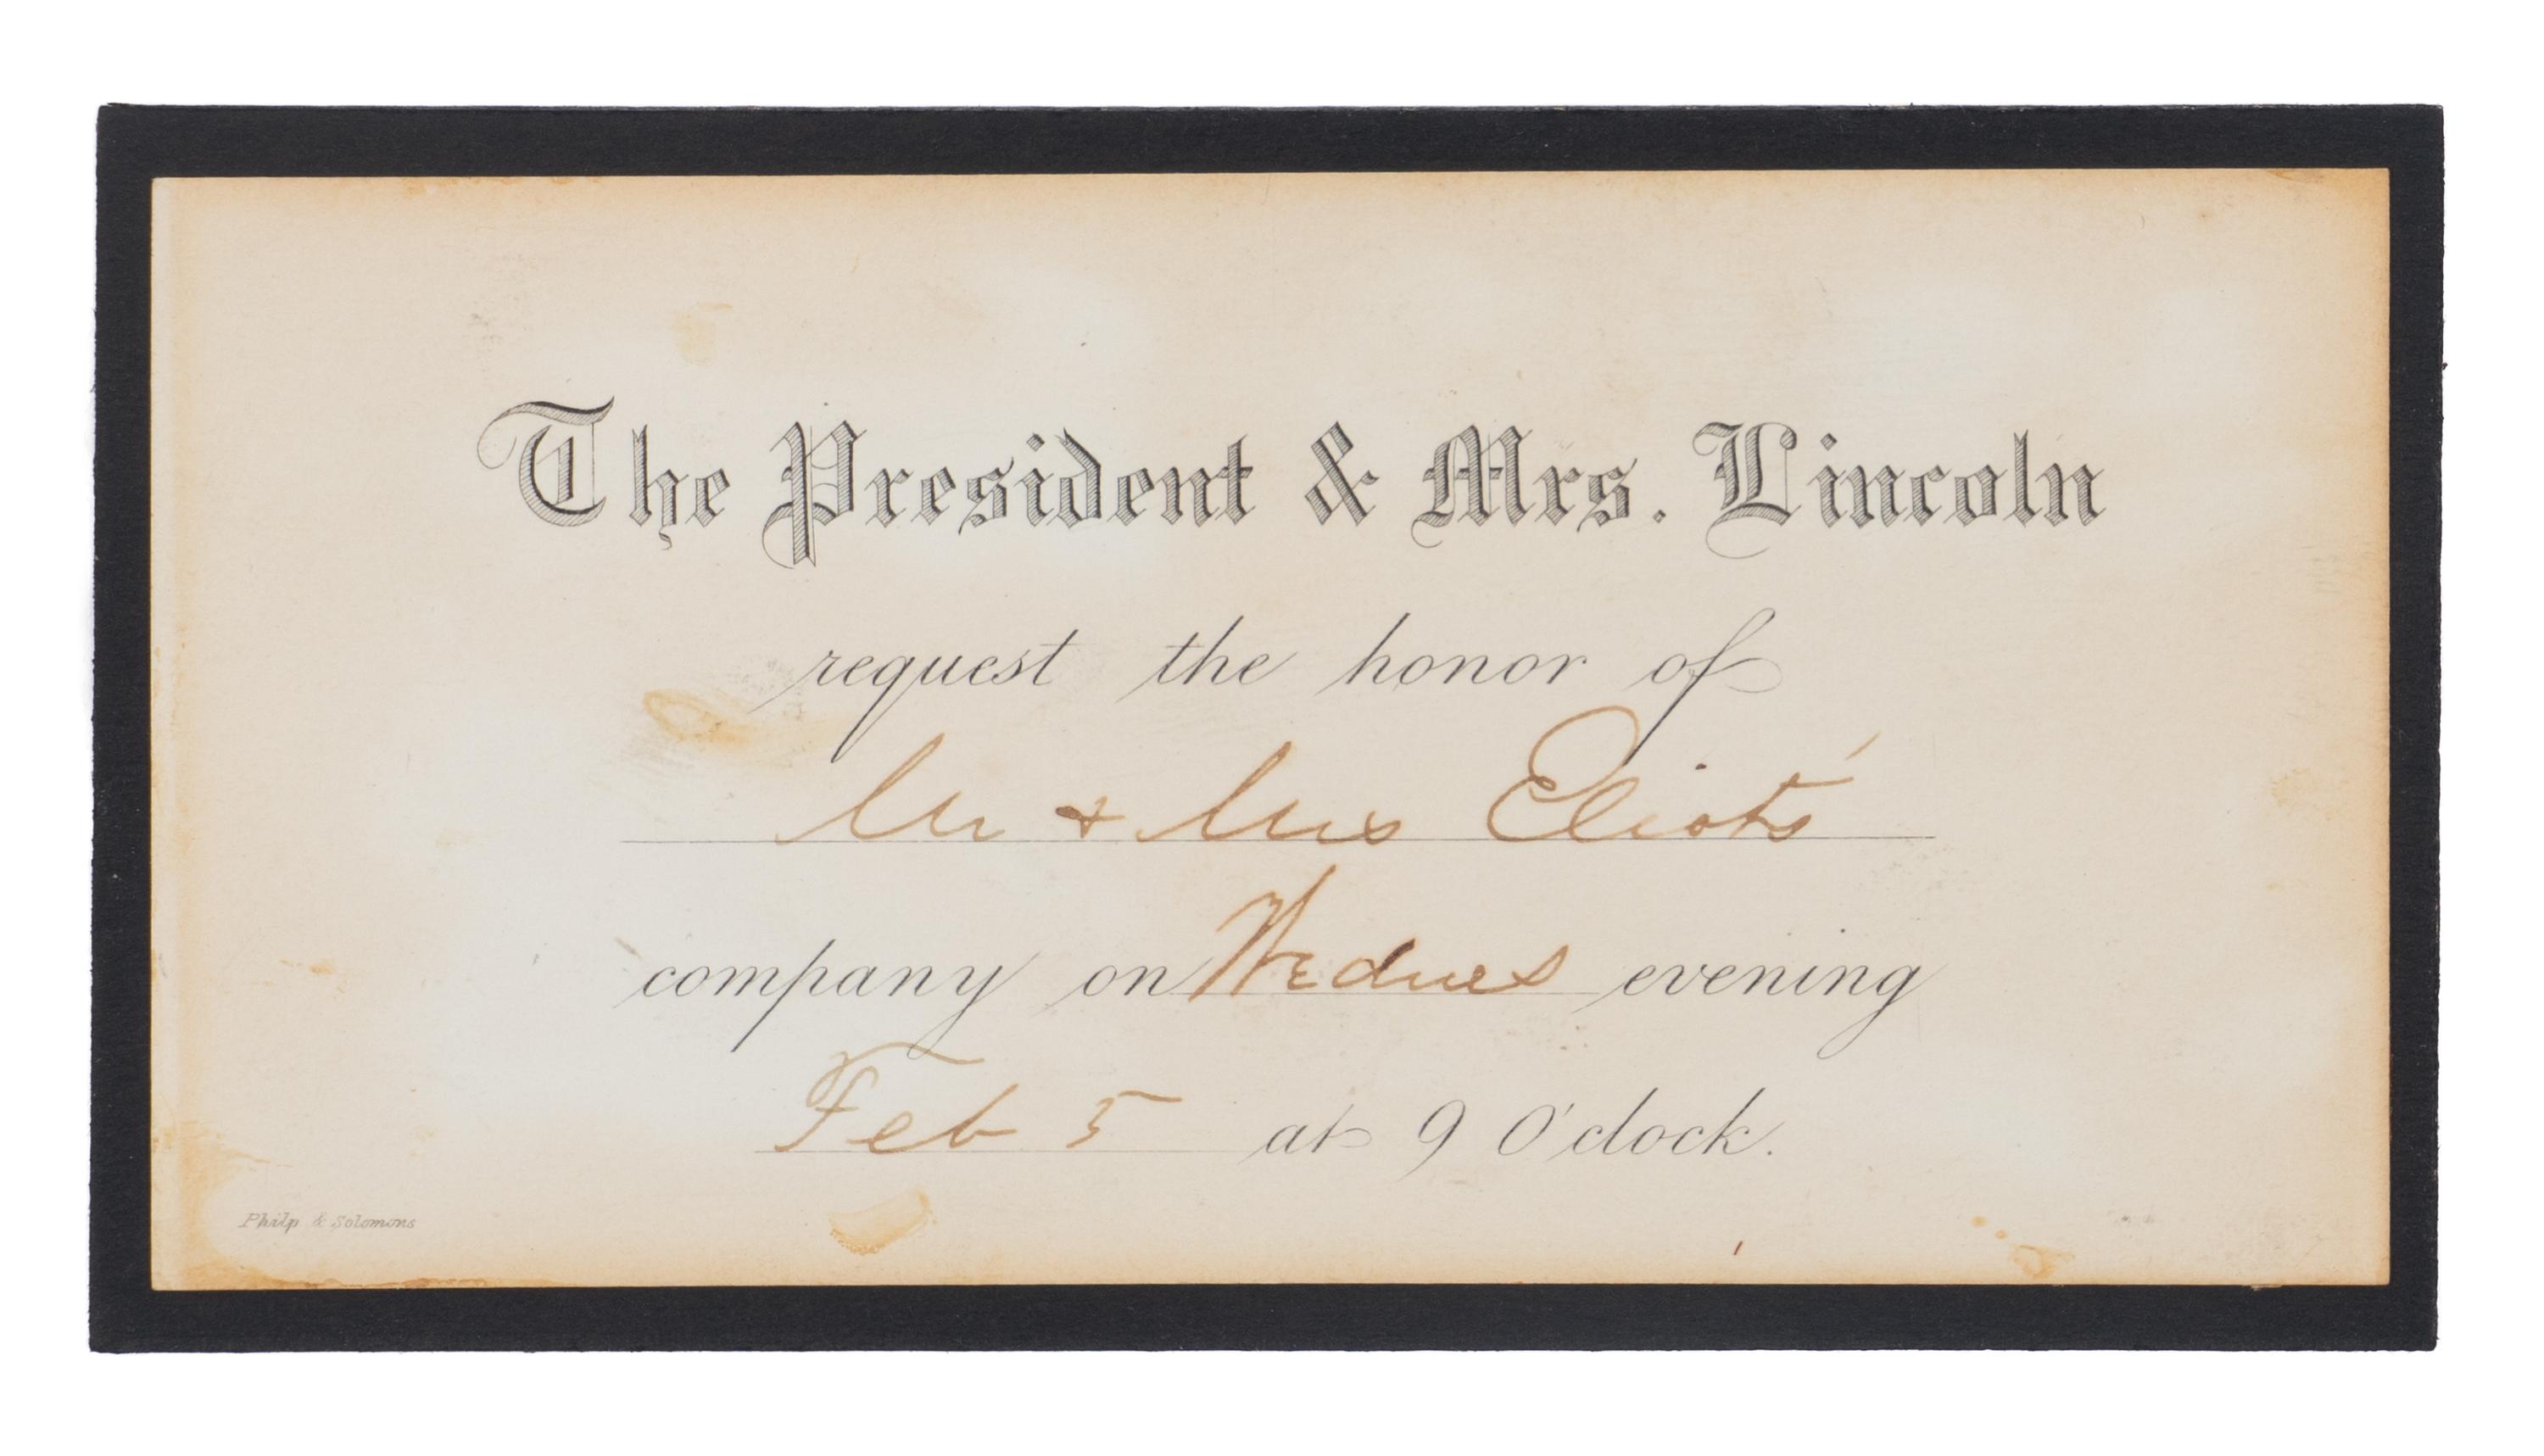 The President & Mrs. Lincoln
request the honor of
Mr + Mrs Eliots'
company on Wednes evening
Feb 5 at 9 O'clock.
Philp & Solomons